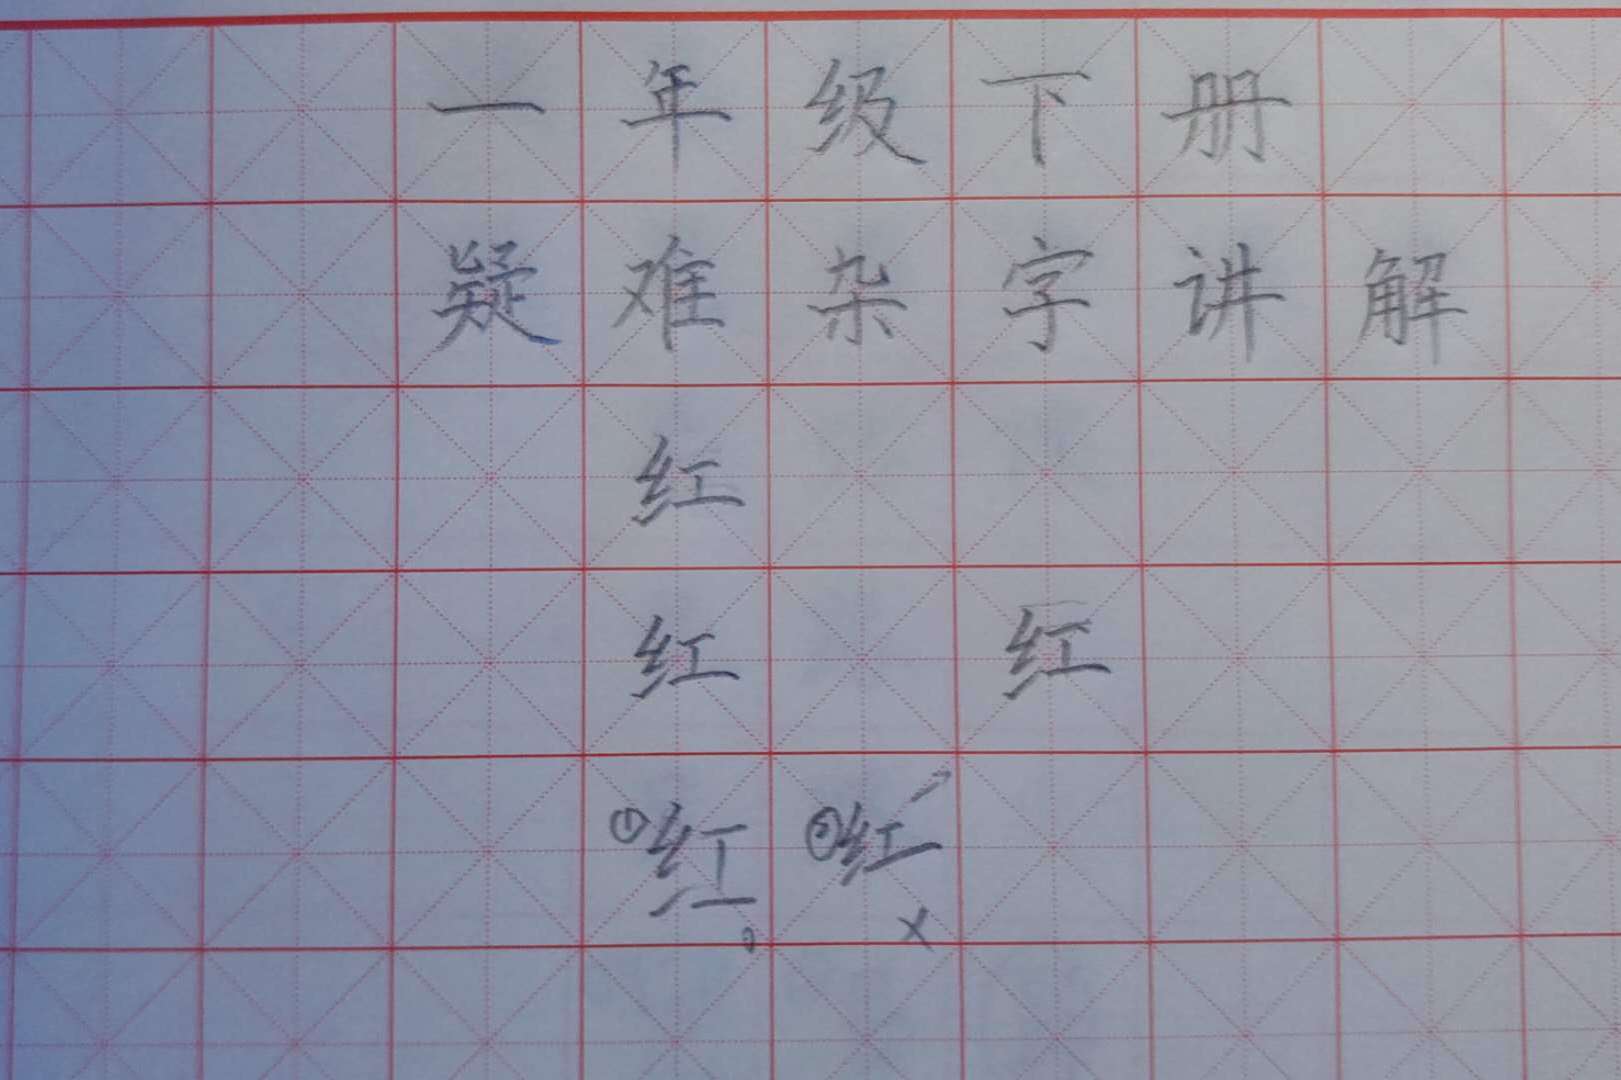 一年级下册
疑难杂字讲解
红
红 红
①红 ②红
×